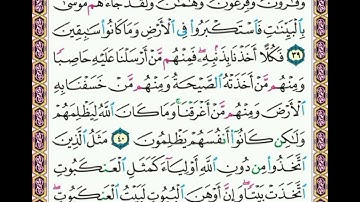 وَقَٰرُونَ وَفِرْعَوْنَ وَهَٰمَٰنَ وَلَقَدْ جَآءَهُم مُّوسَىٰ
بِٱلْبَيِّنَٰتِ فَٱسْتَكْبَرُوا۟ فِى ٱلْأَرْضِ وَمَا كَانُوا۟ سَٰبِقِينَ
٣٩ فَكُلًّا أَخَذْنَا بِذَنۢبِهِۦ فَمِنْهُم مَّنْ أَرْسَلْنَا عَلَيْهِ حَاصِبًا
وَمِنْهُم مَّنْ أَخَذَتْهُ ٱلصَّيْحَةُ وَمِنْهُم مَّنْ خَسَفْنَا بِهِ
ٱلْأَرْضَ وَمِنْهُم مَّنْ أَغْرَقْنَا وَمَا كَانَ ٱللَّهُ لِيَظْلِمَهُمْ
وَلَٰكِن كَانُوٓا۟ أَنفُسَهُمْ يَظْلِمُونَ ٤٠ مَثَلُ ٱلَّذِينَ
ٱتَّخَذُوا۟ مِن دُونِ ٱللَّهِ أَوْلِيَآءَ كَمَثَلِ ٱلْعَنكَبُوتِ
ٱتَّخَذَتْ بَيْتًا وَإِنَّ أَوْهَنَ ٱلْبُيُوتِ لَبَيْتُ ٱلْعَنكَبُوتِ